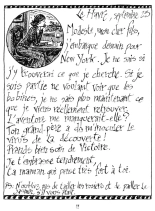 Le Havre, septembre 25
Modeste, mon cher fils,
j'embarque demain pour
New York. Je ne sais si
j'y trouverai ce que je cherche. Si je
suis partie ne voulant voir que les
je ne sais plus maintenant ce
que je viens réellement retrouver.
L'aventure me manquerait-elle ?
Ton grand-père a dû m'inoculer le
virus de la découverte !
Prends bien soin de Victoire.
Je t'embrasse tendrement,
Ta maman qui pense très fort à toi.
P.S. N'oublies pas de tailler les rosiers et de pailler le
19